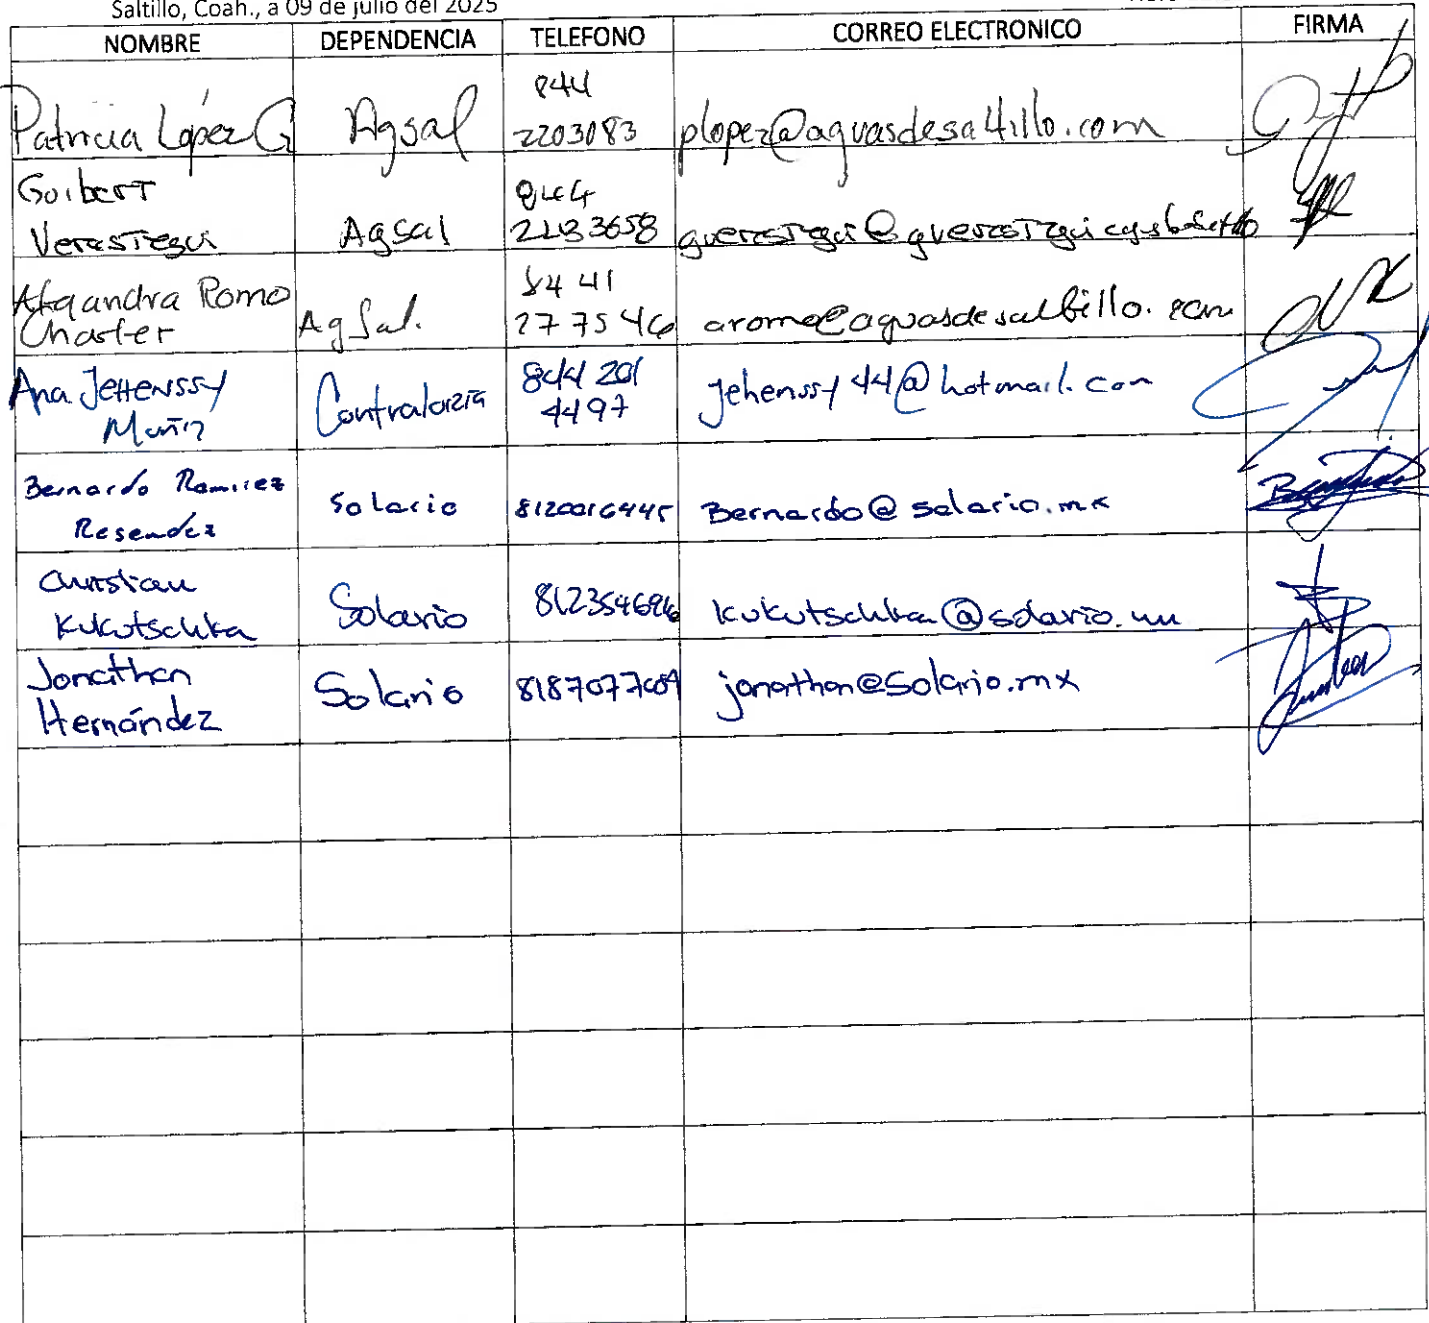 Saltillo, Coah., a 09 de julio del 2025
NOMBRE DEPENDENCIA TELEFONO CORREO ELECTRONICO FIRMA
Patricia López G Agsal 844 2203083 plopez@aguasdesaltillo.com
Verastegui Agsal 844
Romo Charles AgSal. 8441 277546 aromo@aguasdesaltillo.com
Ana Jehenssy Muñiz Contraloría 844 201 4497 Jehenssy44@hotmail.com
Bernardo Ramirez Resendez Solario 8120016445 Bernardo@solario.mx
Christian Kukutschka Solario kukutschka@solario.mx
Jonathan Hernández Solario jonathan@solario.mx